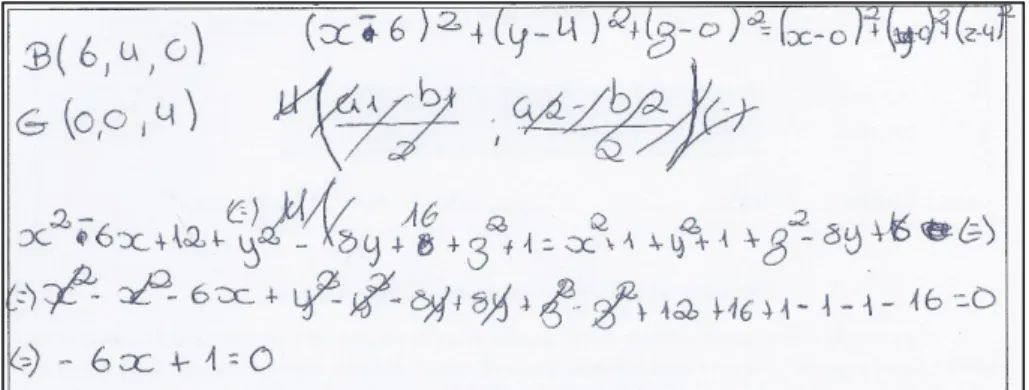 B(6,4,0) (x-6)²+(y-4)²+(z-0)²=(x-0)²+(y-0)²+(z-4)²
G(0,0,4)
x²-6x+12+y²-8y+16+z²+1=x²+1+y²+1+z²-8y+16 (=)
(=) x²-x²-6x+y²-y²-8y+8y+z²-z²+12+16+1-1-1-16=0
(=) -6x+1=0